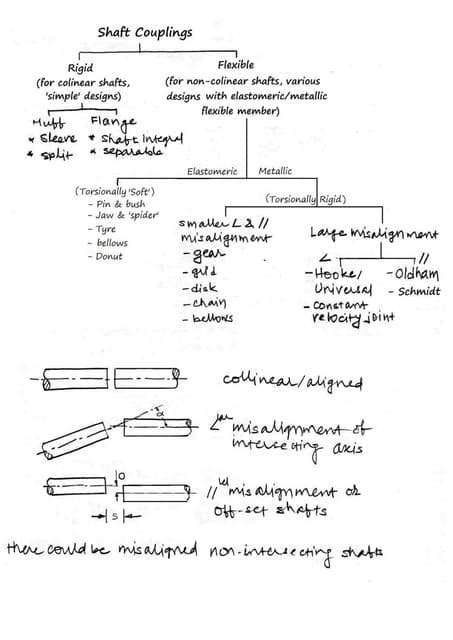 Shaft Couplings
Rigid
(for colinear shafts,
'simple' designs)
Flexible
(for non-colinear shafts, various
designs with elastomeric/metallic
flexible member)
Muff
* Sleeve
* split
Flange
* shaft integral
* separable
Elastomeric
Metallic
(Torsionally 'Soft')
- Pin & bush
- Jaw & 'spider'
- Tyre
- bellows
- Donut
(Torsionally Rigid)
smaller ∠ & //
misalignment
- gear
- grid
- disk
- chain
- bellows
Large misalignment
∠
- Hooke/
Universal
- constant
velocity joint
//
- Oldham
- Schmidt
collinear/aligned
α
∠ular misalignment of
intersecting axis
O
S
//lel misalignment or
off-set shafts
there could be misaligned non-intersecting shafts